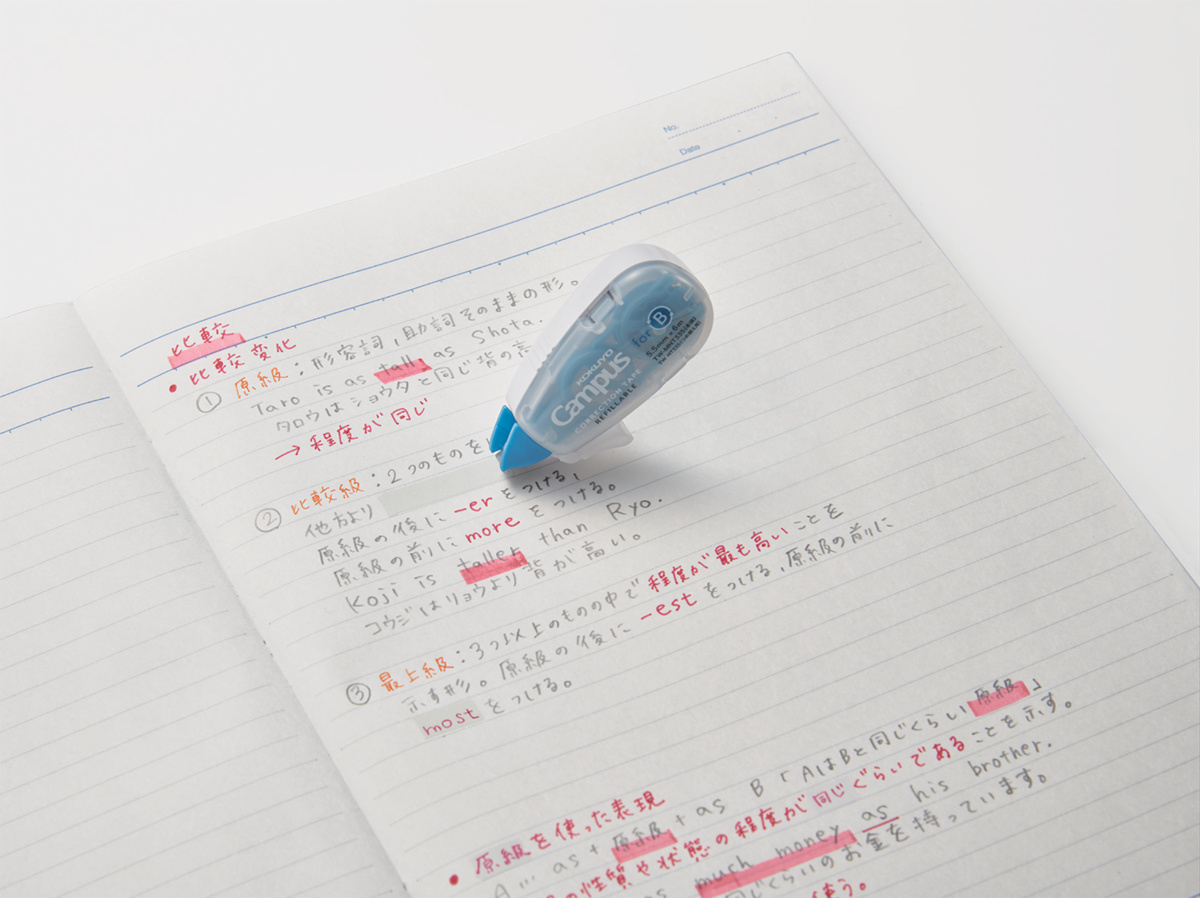 No.
Date
比較
• 比較変化
① 原級：形容詞,助詞そのままの形。
Taro is as tall as Shota.
タロウはショウタと同じ背の高
→ 程度が同じ
② 比較級：2つのものを
他方より
原級の後に -er をつける,
原級の前に more をつける。
Koji is taller than Ryo.
コウジはリョウより背が高い。
③ 最上級：3つ以上のものの中で程度が最も高いことを
示す形。原級の後に -est をつける,原級の前に
most をつける。
• 原級を使った表現
A… as + 原級 + as B「AはBと同じくらい原級」
の性質や状態の程度が同じぐらいであることを示す。
as much money as his brother.
同じぐらいのお金を持っています。
使う。
for B
5.5mm × 6m
KOKUYO
Campus
CORRECTION TAPE
REFILLABLE